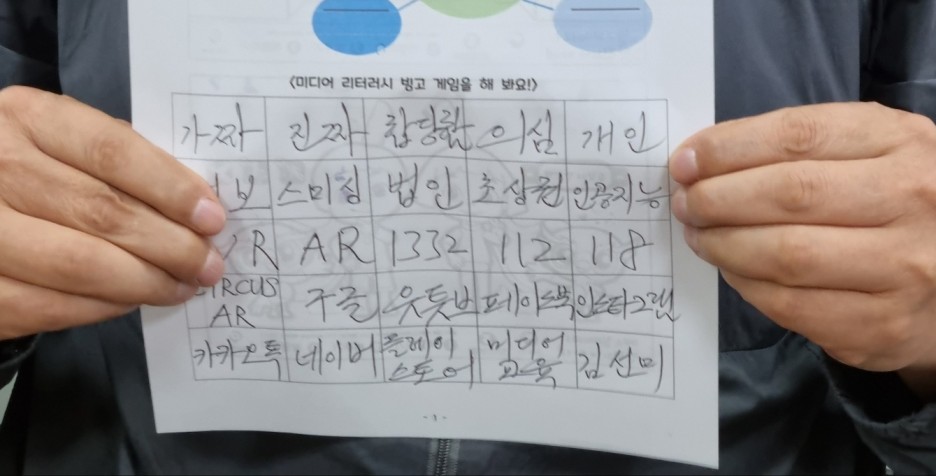 <미디어 리터러시 빙고 게임을 해 봐요!>
가짜 진짜 의심 개인
보 스미싱 법인 초상권 인공지능
R AR 1332 112 118
CIRCUS AR 구글 유튜브 페이스북 인스타그램
카카오톡 네이버 플레이 스토어 미디어 교육 김선미
- 1 -